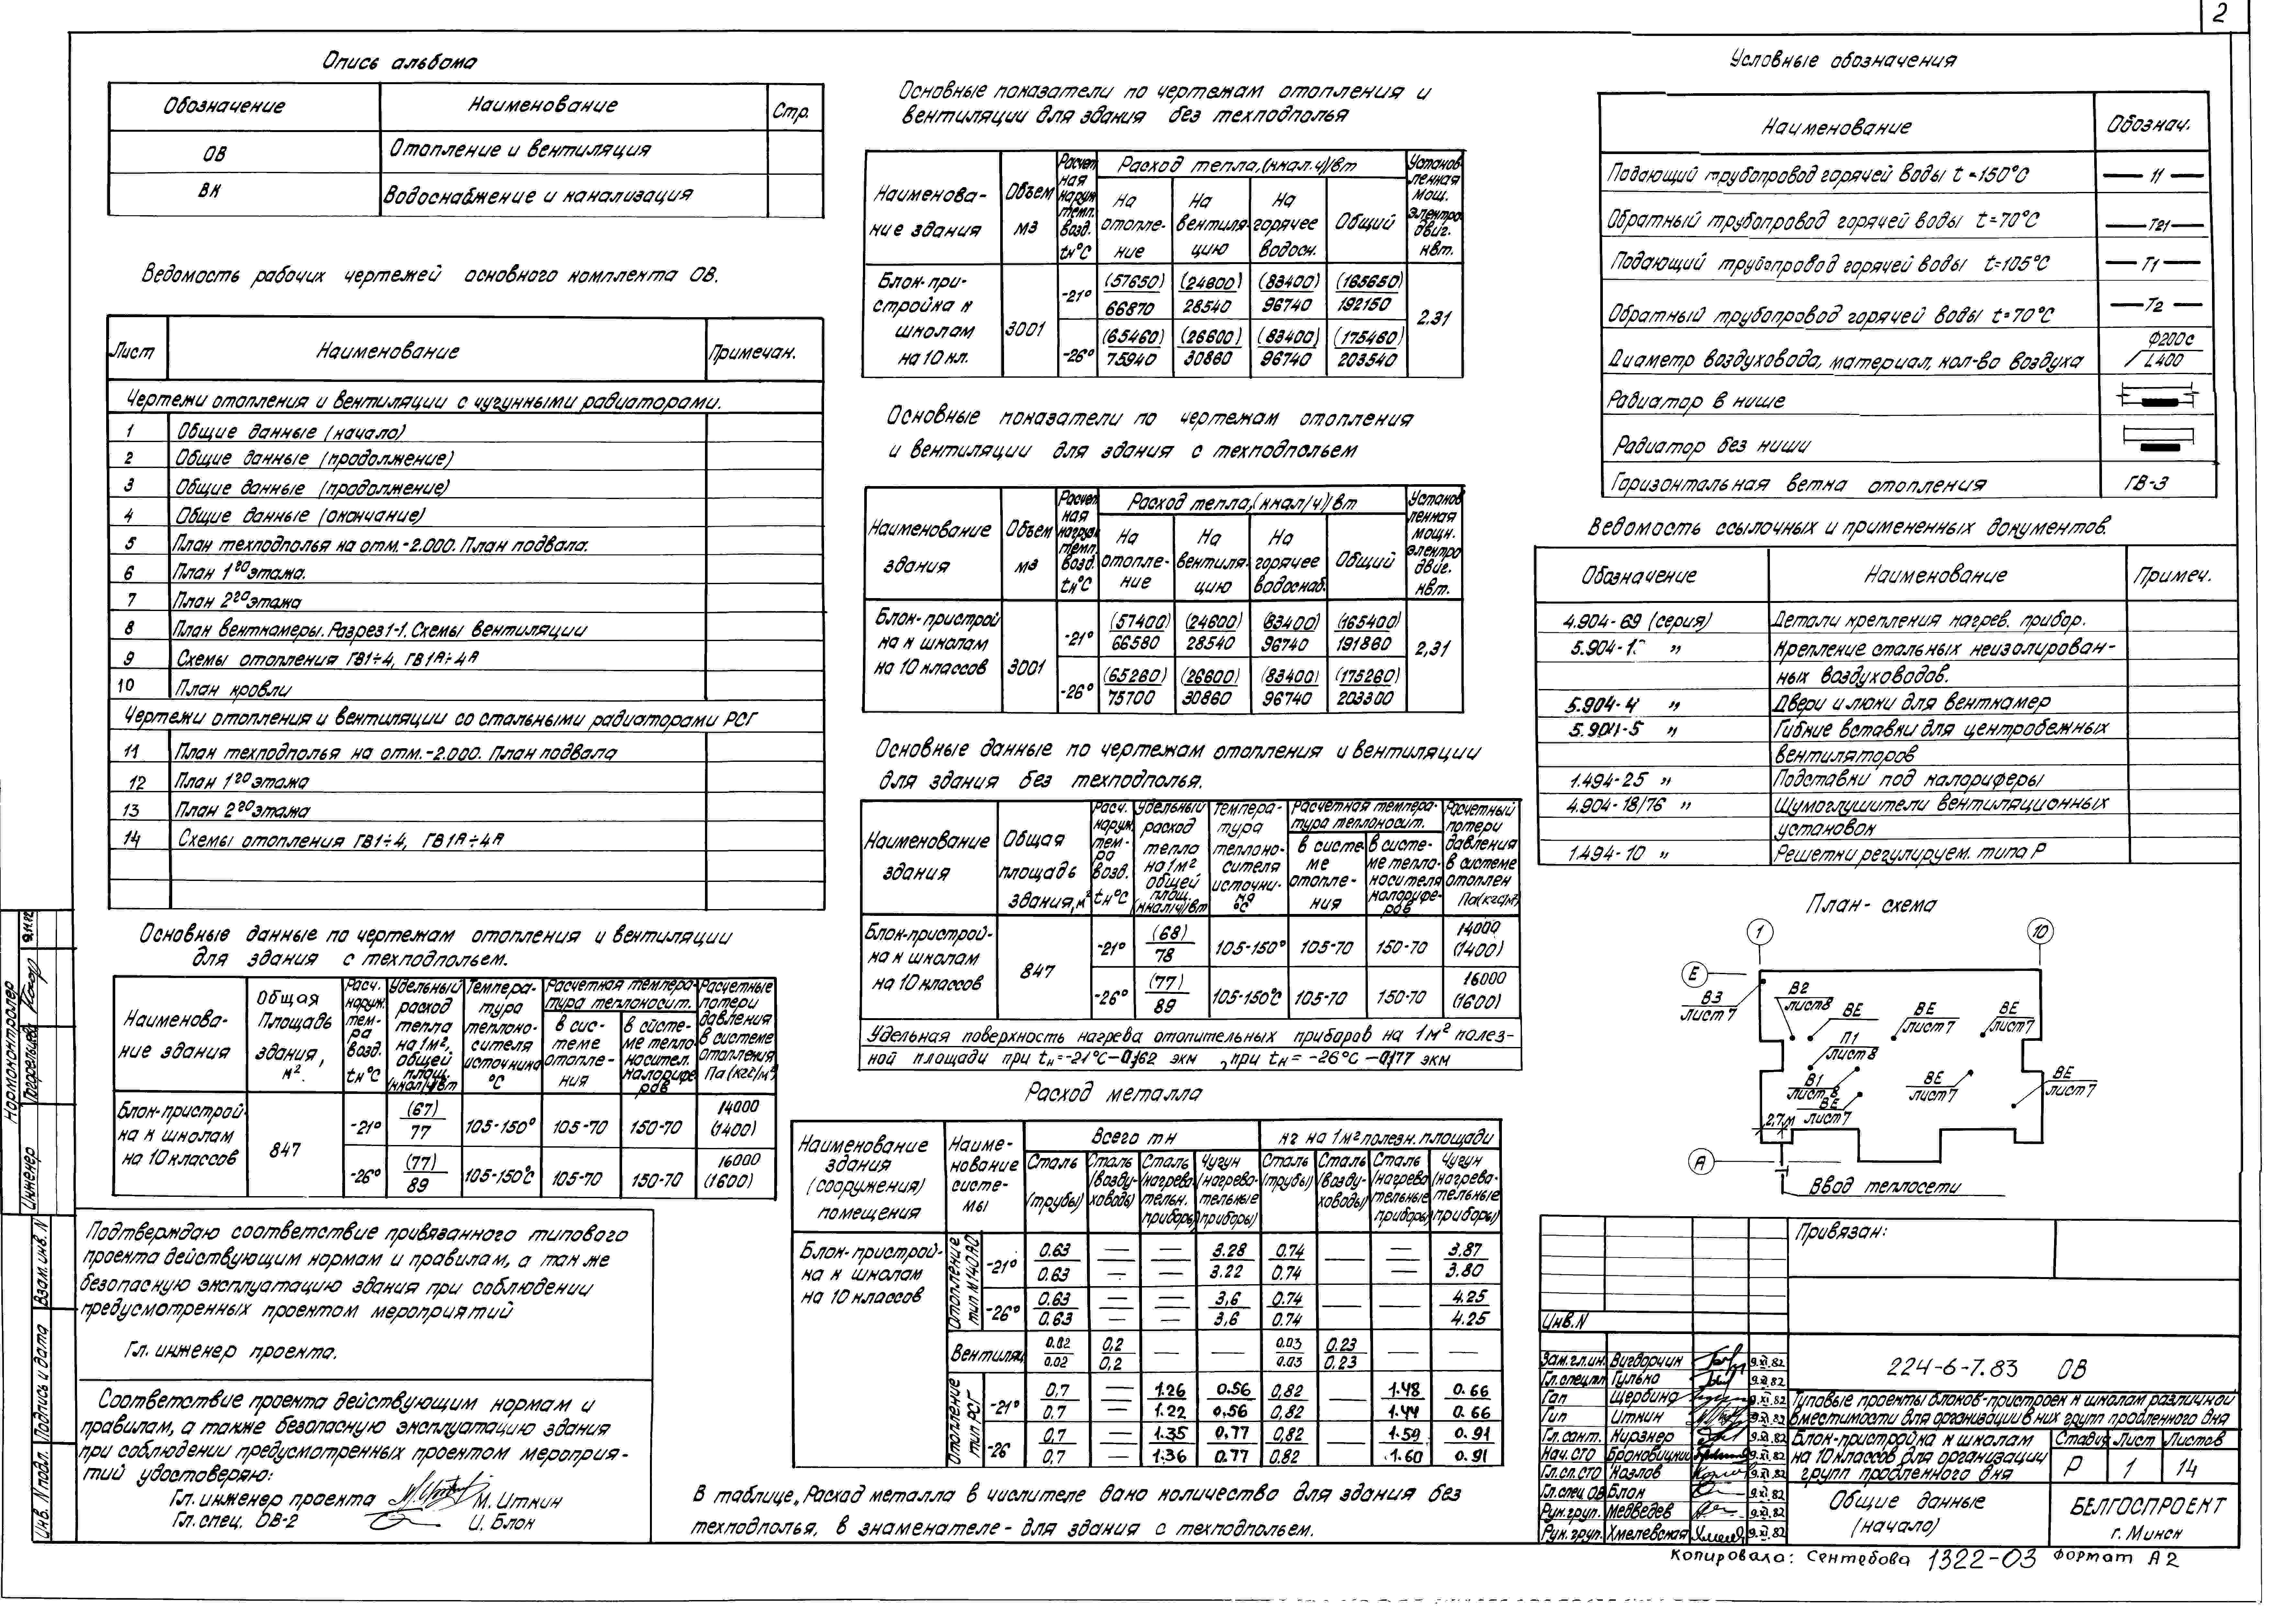 2
Опись альбома
Обозначение Наименование Стр.
ОВ Отопление и вентиляция
ВК Водоснабжение и канализация
Ведомость рабочих чертежей основного комплекта ОВ.
Лист Наименование Примечан.
Чертежи отопления и вентиляции с чугунными радиаторами.
1 Общие данные (начало)
2 Общие данные (продолжение)
3 Общие данные (продолжение)
4 Общие данные (окончание)
5 План техподполья на отм.-2.000. План подвала.
6 План 1го этажа.
7 План 2го этажа
8 План венткамеры. Разрез 1-1. Схемы вентиляции
9 Схемы отопления ГВ1÷4, ГВ1А÷4А
10 План кровли
Чертежи отопления и вентиляции со стальными радиаторами РСГ
11 План техподполья на отм.-2.000. План подвала
12 План 1го этажа
13 План 2го этажа
14 Схемы отопления ГВ1÷4, ГВ1А÷4А
Основные данные по чертежам отопления и вентиляции
для здания с техподпольем.
Наименова-
ние здания
Общая
Площадь
здания,
м².
Расч.
наруж.
тем-
ра
возд.
tн°С
Удельный
расход
тепла
на 1м²,
общей
площ.
(ккал/ч)/вт
Темпера-
тура
теплоно-
сителя
источника
°С
Расчетная темпера-
тура теплоносит.
в сис-
теме
отопле-
ния
в систе-
ме тепло-
носител.
калорифе
ров
Расчетные
потери
давления
в системе
отопления
Па(кгс/м²)
Блок-пристрой-
ка к школам
на 10 классов
847
-21° (67) 77 105-150° 105-70 150-70 14000 (1400)
-26° (77) 89 105-150°С 105-70 150-70 16000 (1600)
Подтверждаю соответствие привязанного типового
проекта действующим нормам и правилам, а так же
безопасную эксплуатацию здания при соблюдении
предусмотренных проектом мероприятий
Гл. инженер проекта.
Соответствие проекта действующим нормам и
правилам, а также безопасную эксплуатацию здания
при соблюдении предусмотренных проектом мероприя-
тий удостоверяю:
Гл. инженер проекта М. Иткин
Гл. спец. ОВ-2 И. Блок
Нормоконтролер
Инженер Погорельцева
Взам. инв. N
Подпись и дата
Инв. N подл.
Основные показатели по чертежам отопления и
вентиляции для здания без техподполья
Наименова-
ние здания
Объем
м3
Расчет
ная
наруж
темп.
возд.
tн°С
Расход тепла,(ккал.ч)/вт
На
отопле-
ние
На
вентиля-
цию
На
горячее
водосн.
Общий
Установ
ленная
мощ.
электро
двиг.
квт.
Блок-при-
стройка к
школам
на 10 кл.
3001
-21° (57650) (24600) (83400) (165650)
66870 28540 96740 192150
2.31
-26° (65460) (26600) (83400) (175460)
75940 30860 96740 203540
Основные показатели по чертежам отопления
и вентиляции для здания с техподпольем
Наименование
здания
Объем
м3
Расчет
ная
наруж
темп.
возд.
tн°С
Расход тепла,(ккал/ч)/вт
На
отопле-
ние
На
вентиля-
цию
На
горячее
водоснаб.
Общий
Установ
ленная
мощн.
электро
двиг.
квт.
Блок-пристрой
ка к школам
на 10 классов
3001
-21° (57400) (24600) (83400) (165400)
66580 28540 96740 191860
2,31
-26° (65260) (26600) (83400) (175260)
75700 30860 96740 203300
Основные данные по чертежам отопления и вентиляции
для здания без техподполья.
Наименование
здания
Общая
площадь
здания,м²
Расч.
наруж.
тем-
ра
возд.
tн°С
Удельный
расход
тепла
на 1м²
общей
площ.
(ккал/ч)/вт
Темпера-
тура
теплоно-
сителя
источни-
ка
°С
Расчетная темпера-
тура теплоносит.
в систе
ме
отопле-
ния
в систе-
ме тепло-
носителя
калорифе-
ров
Расчетный
потери
давления
в системе
отоплен
Па(кгс/м²)
Блок-пристрой-
ка к школам
на 10 классов
847
-21° (68) 78 105-150° 105-70 150-70 14000 (1400)
-26° (77) 89 105-150°С 105-70 150-70 16000 (1600)
Удельная поверхность нагрева отопительных приборов на 1м² полез-
ной площади при tн=-21°С-0,162 экм , при tн = -26°С -0,177 экм
Расход металла
Наименование
здания
(сооружения)
помещения
Наиме-
нование
систе-
мы
Всего тн
кг на 1м² полезн. площади
Сталь
(трубы)
Сталь
(возду-
ховоды)
Сталь
(нагрева
тельн.
приборы)
Чугун
(нагрева-
тельные
приборы)
Сталь
(трубы)
Сталь
(возду-
ховоды)
Сталь
(нагрева-
тельные
приборы)
Чугун
(нагрева-
тельные
приборы)
Блок-пристрой-
ка к школам
на 10 классов
Отопление
тип М140АО
-21° 0.63 — — 3.28 0.74 — — 3.87
0.63 — — 3.22 0.74 3.80
-26° 0.63 — — 3,6 0.74 — — 4.25
0.63 — — 3,6 0.74 4.25
Вентиляц 0.02 0,2 — — 0.03 0.23 — —
0.02 0,2 0.03 0.23
Отопление
тип РСГ
-21° 0,7 — 1.26 0.56 0,82 — 1.48 0.66
0.7 — 1.22 0,56 0,82 1.44 0.66
-26 0,7 — 1.35 0,77 0,82 — 1.59 0.91
0.7 — 1.36 0.77 0.82 1.60 0.91
В таблице„Расход металла в числителе дано количество для здания без
техподполья, в знаменателе - для здания с техподпольем.
Условные обозначения
Наименование Обознач.
Подающий трубопровод горячей воды t=150°С 11
Обратный трубопровод горячей воды t=70°С Т21
Подающий трубопровод горячей воды t=105°С Т1
Обратный трубопровод горячей воды t=70°С Т2
Диаметр воздуховода, материал, кол-во воздуха Ф200с L400
Радиатор в нише
Радиатор без ниши
Горизонтальная ветка отопления ГВ-3
Ведомость ссылочных и примененных документов.
Обозначение Наименование Примеч.
4.904-69 (серия) Детали крепления нагрев. прибор.
5.904-1 „ Крепление стальных неизолирован-
ных воздуховодов.
5.904-4 „ Двери и люки для венткамер
5.904-5 „ Гибкие вставки для центробежных
вентиляторов
1.494-25 „ Подставки под калориферы
4.904-18/76 „ Шумоглушители вентиляционных
установок
1.494-10 „ Решетки регулируем. типа Р
План-схема
1 10
Е
В3
лист7
В2
лист8
ВЕ
ВЕ
лист7
ВЕ
лист7
П1
лист8
В1
лист8
ВЕ
лист7
ВЕ
лист7
ВЕ
лист7
2,7м
А
Ввод теплосети
Привязан:
Инв.N
Зам.гл.ин. Вигдорчик 9.XI.82
Гл.спец.тл Гулько 9.XI.82
Гап Щербина 9.XI.82
Гип Иткин 9.XI.82
Гл.сант. Нирзнер 9.XI.82
Нач.СТО Броновицкий 9.XI.82
Гл.сп.СТО Козлов 9.XI.82
Гл.спец ОВ Блок 9.XI.82
Рук.груп. Медведев 9.XI.82
Рук.груп. Хмелевская 9.XI.82
224-6-7.83 ОВ
Типовые проекты блоков-пристроек к школам различной
вместимости для организации в них групп продленного дня
Блок-пристройка к школам
на 10 классов для организации
групп продленного дня
Стадия Лист Листов
Р 1 14
Общие данные
(начало)
БЕЛГОСПРОЕКТ
г. Минск
Копировала: Сентебова 1322-03 формат А2